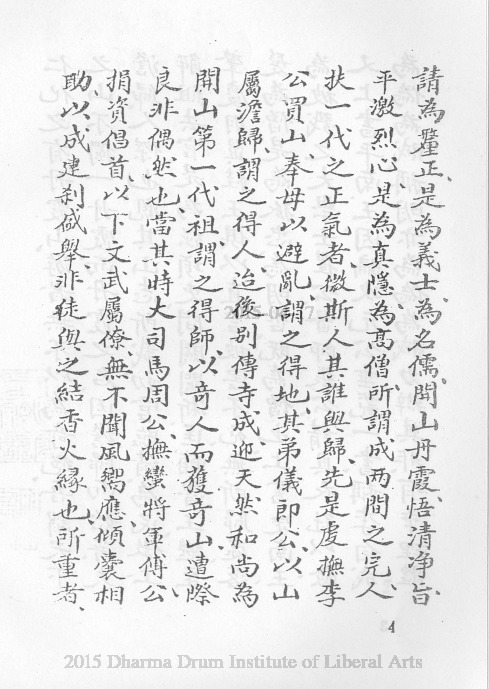 請為釐正、是為義士、為名儒、開山丹霞、悟清淨旨、
平激烈心、是為真隱、為高僧、所謂成两間之完人、
扶一代之正氣者、微斯人其誰與歸、先是虔撫李
公買山奉母以避亂、謂之得地、其弟儀部公、以山
屬澹歸、謂之得人、迨後别傳寺成、迎天然和尚為
開山第一代祖、謂之得師、以奇人而獲奇山、遭際
良非偶然也、當其時大司馬周公、撫蠻將軍傅公、
捐資倡首、以下文武屬僚、無不聞風嚮應、傾囊相
助、以成建刹盛舉、非徒與之結香火緣也、所重者、
4
2015 Dharma Drum Institute of Liberal Arts